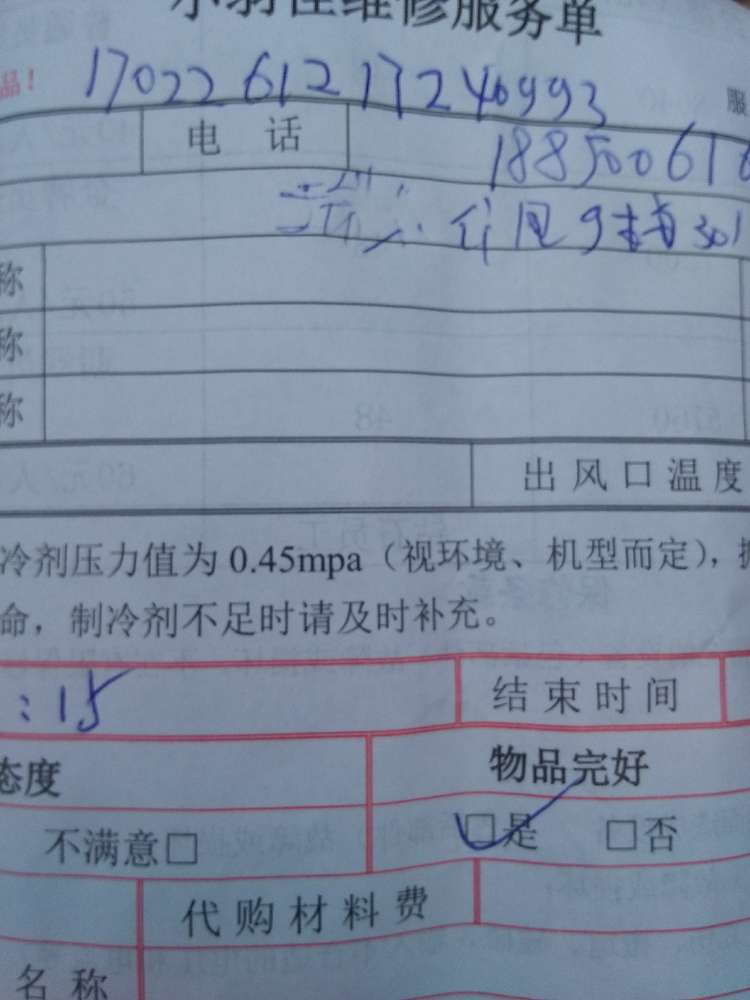 维修服务单
品！
1702261217240993
服
电 话
188500616
称
称
称
出风口温度
冷剂压力值为0.45mpa（视环境、机型而定），
命，制冷剂不足时请及时补充。
:15
结束时间
态度
物品完好
不满意□
□是 □否
代购材料费
名称